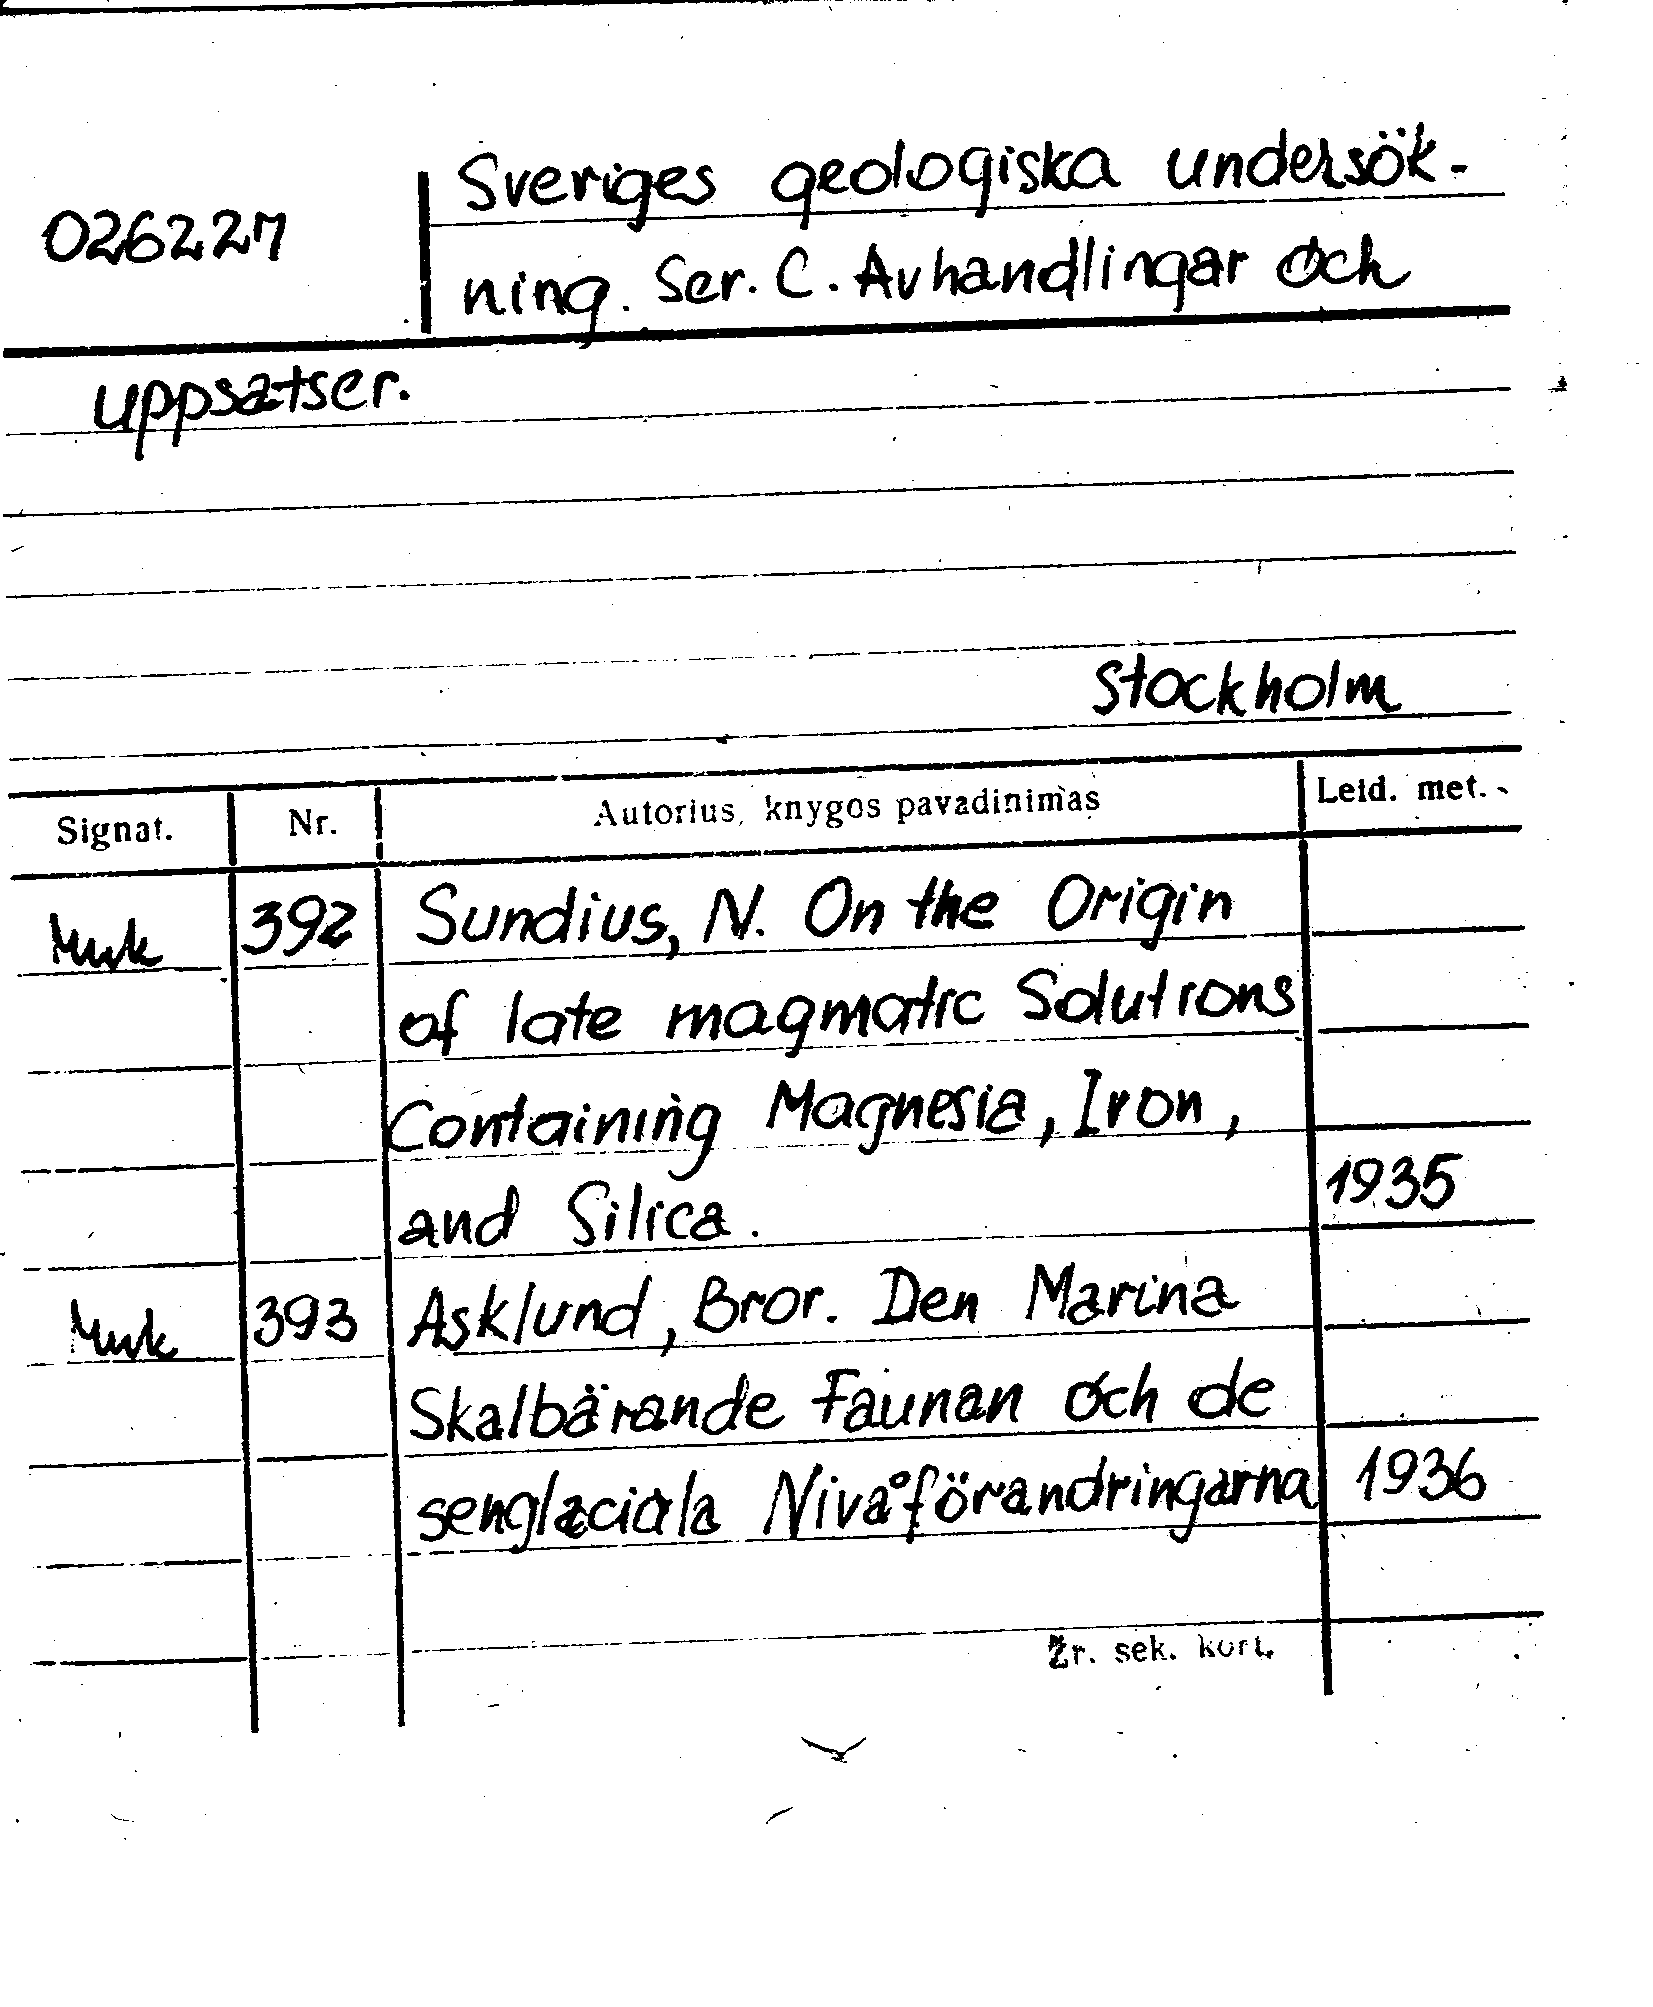 026227
Sveriges geologiska undersök-
ning. Ser. C. Avhandlingar och
uppsatser.
Stockholm
Signat. Nr. Autorius, knygos pavadinimas Leid. met.
392 Sundius, N. On the Origin
of late magmatic Solutions
Containing Magnesia, Iron,
and Silica. 1935
393 Asklund, Bror. Den Marina
Skalbärande Faunan och de
senglaciala Nivåförandringarna 1936
Žr. sek. kort.